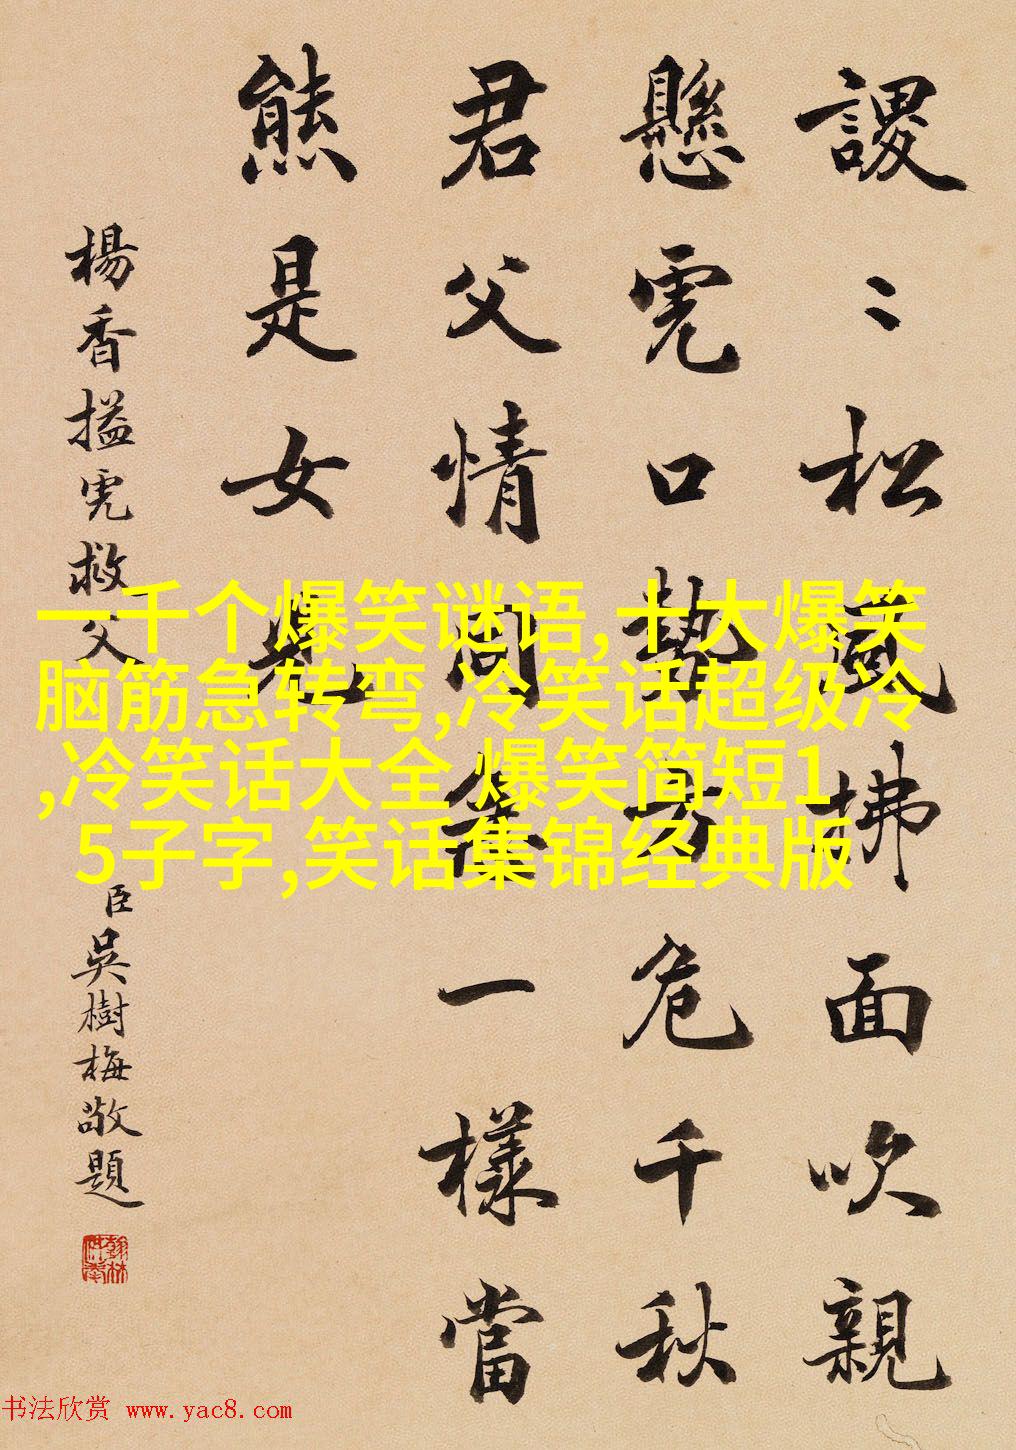 謖〻松風拂面吹親
懸虎口勢方危千秋
君父情同篤一樣當
熊是女兒
楊香搤虎救父
臣吳樹梅敬題
翰林供奉
一千个爆笑谜语,十大爆笑
脑筋急转弯,冷笑话超级冷
,冷笑话大全,爆笑简短1
5子字,笑话集锦经典版
书法欣赏 www.yac8.com